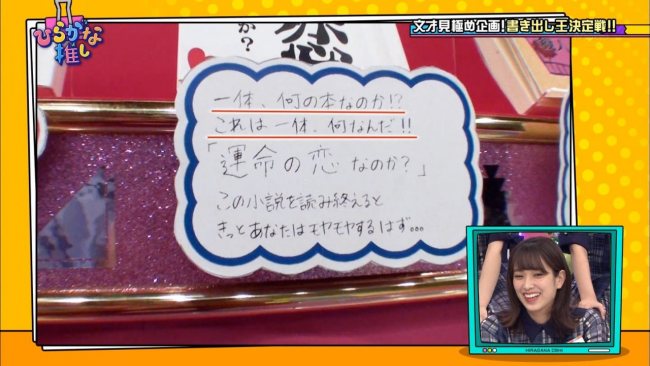 ひらがな推し
文才見極め企画!書き出し王決定戦!!
か?
恋
一体、何の本なのか!?
これは一体、何なんだ!!
「運命の恋なのか?」
この小説を読み終えると
きっとあなたはモヤモヤするはず…
HIRAGANA OSHI